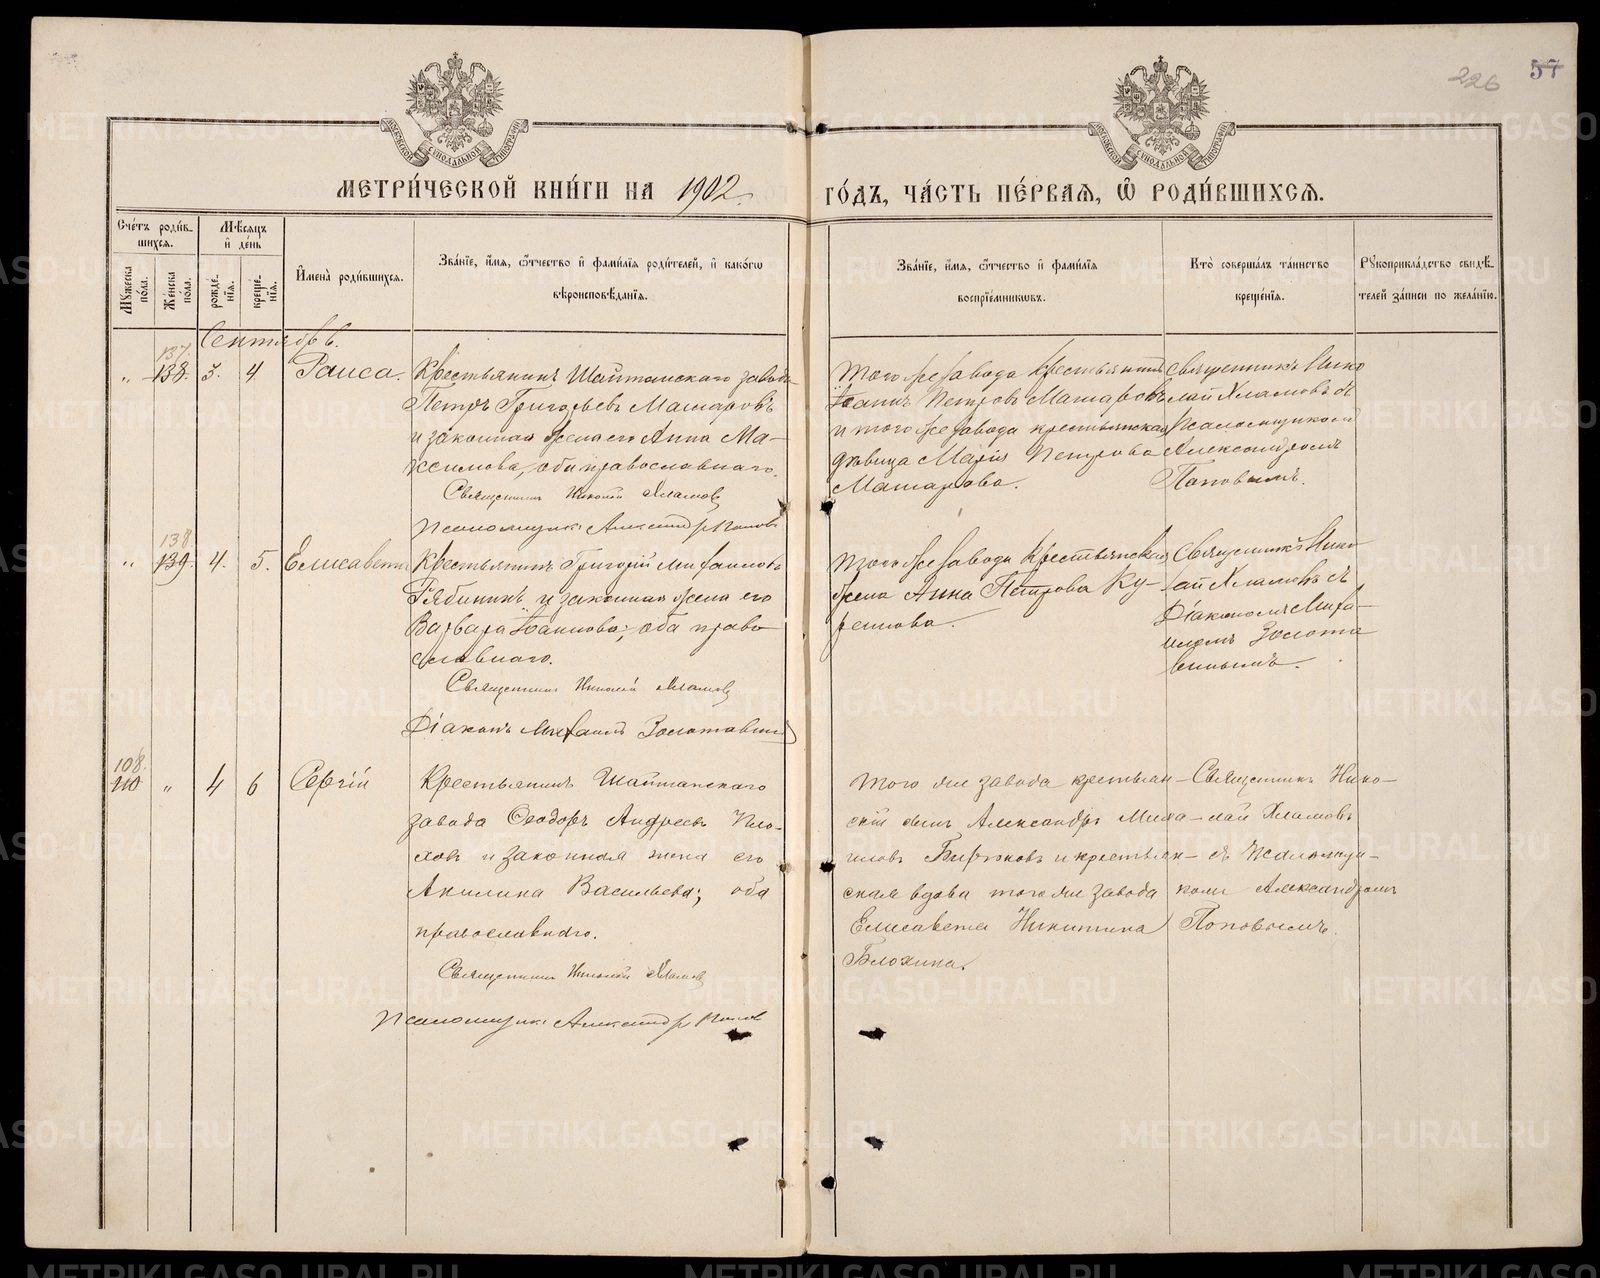 226 57
МОСКОВСКОЙ СѴНОДАЛЬНОЙ ТИПОГРАФІИ
МОСКОВСКОЙ СѴНОДАЛЬНОЙ ТИПОГРАФІИ
МЕТРИ́ЧЕСКОЙ КНИ́ГИ НА 1902 ГО́ДЪ, ЧА́СТЬ ПЕ́РВАѦ, Ѽ РОДИ́ВШИХСѦ.
Сче́тъ роди́в-
шихсѧ.
Мꙋ́жеска по́ла.
Же́нска по́ла.
Мѣ́сѧцъ
и҆ де́нь
рожде́-
нїѧ.
креще́-
нїѧ.
И҆мена̀ роди́вшихсѧ.
Зва́нїе, и҆́мѧ, ѻ҆́тчество и҆ фами́лїѧ роди́телей, и҆ како́гѡ
вѣроисповѣ́данїѧ.
Зва́нїе, и҆́мѧ, ѻ҆́тчество и҆ фами́лїѧ
воспрїе́мникѡвъ.
Кто̀ соверша́лъ та́инство
креще́нїѧ.
Рꙋкоприкла́дство свидѣ́-
телей за́писи по жела́нїю.
Сентябрь.
137.
„ 138. 3. 4. Раиса.
Крестьянинъ Шайтанскаго завода
Петръ Григорьевъ Машаровъ
и законная жена его Анна Ма-
ксимова, оба православнаго.
Священникъ Николай Хламовъ
Псаломщикъ Александръ Поповъ
Того же завода крестьянинъ
Іоаннъ Петровъ Машаровъ
и того же завода крестьянская
дѣвица Марія Петрова
Машарова.
Священникъ Нико
лай Хламовъ съ
Псаломщикомъ
Александромъ
Поповымъ.
138
„ 139. 4. 5. Елисавета
Крестьянинъ Григорій Михаиловъ
Рябининъ и законная жена его
Варвара Іоаннова; оба право
славнаго.
Священникъ Николай Хламовъ
Діаконъ Михаилъ Золотавинъ
Того же завода Крестьянская
жена Анна Петрова Ку-
ренкова.
Священникъ Нико
лай Хламовъ съ
Діакономъ Миха-
иломъ Золота
винымъ.
108.
110 „ 4 6 Сергій
Крестьянинъ Шайтанскаго
завода Ѳеодоръ Андреевъ Пло-
ховъ и законная жена его
Акилина Васильева; оба
православнаго.
Священникъ Николай Хламовъ
Псаломщикъ Александръ Поповъ
Того же завода крестьян-
скій сынъ Александръ Миха-
иловъ Бирюковъ и крестьян-
ская вдова того же завода
Елисавета Никитина
Блохина.
Священникъ Нико-
лай Хламовъ
съ Псаломщи-
комъ Александромъ
Поповымъ.
METRIKI.GASO-URAL.RU